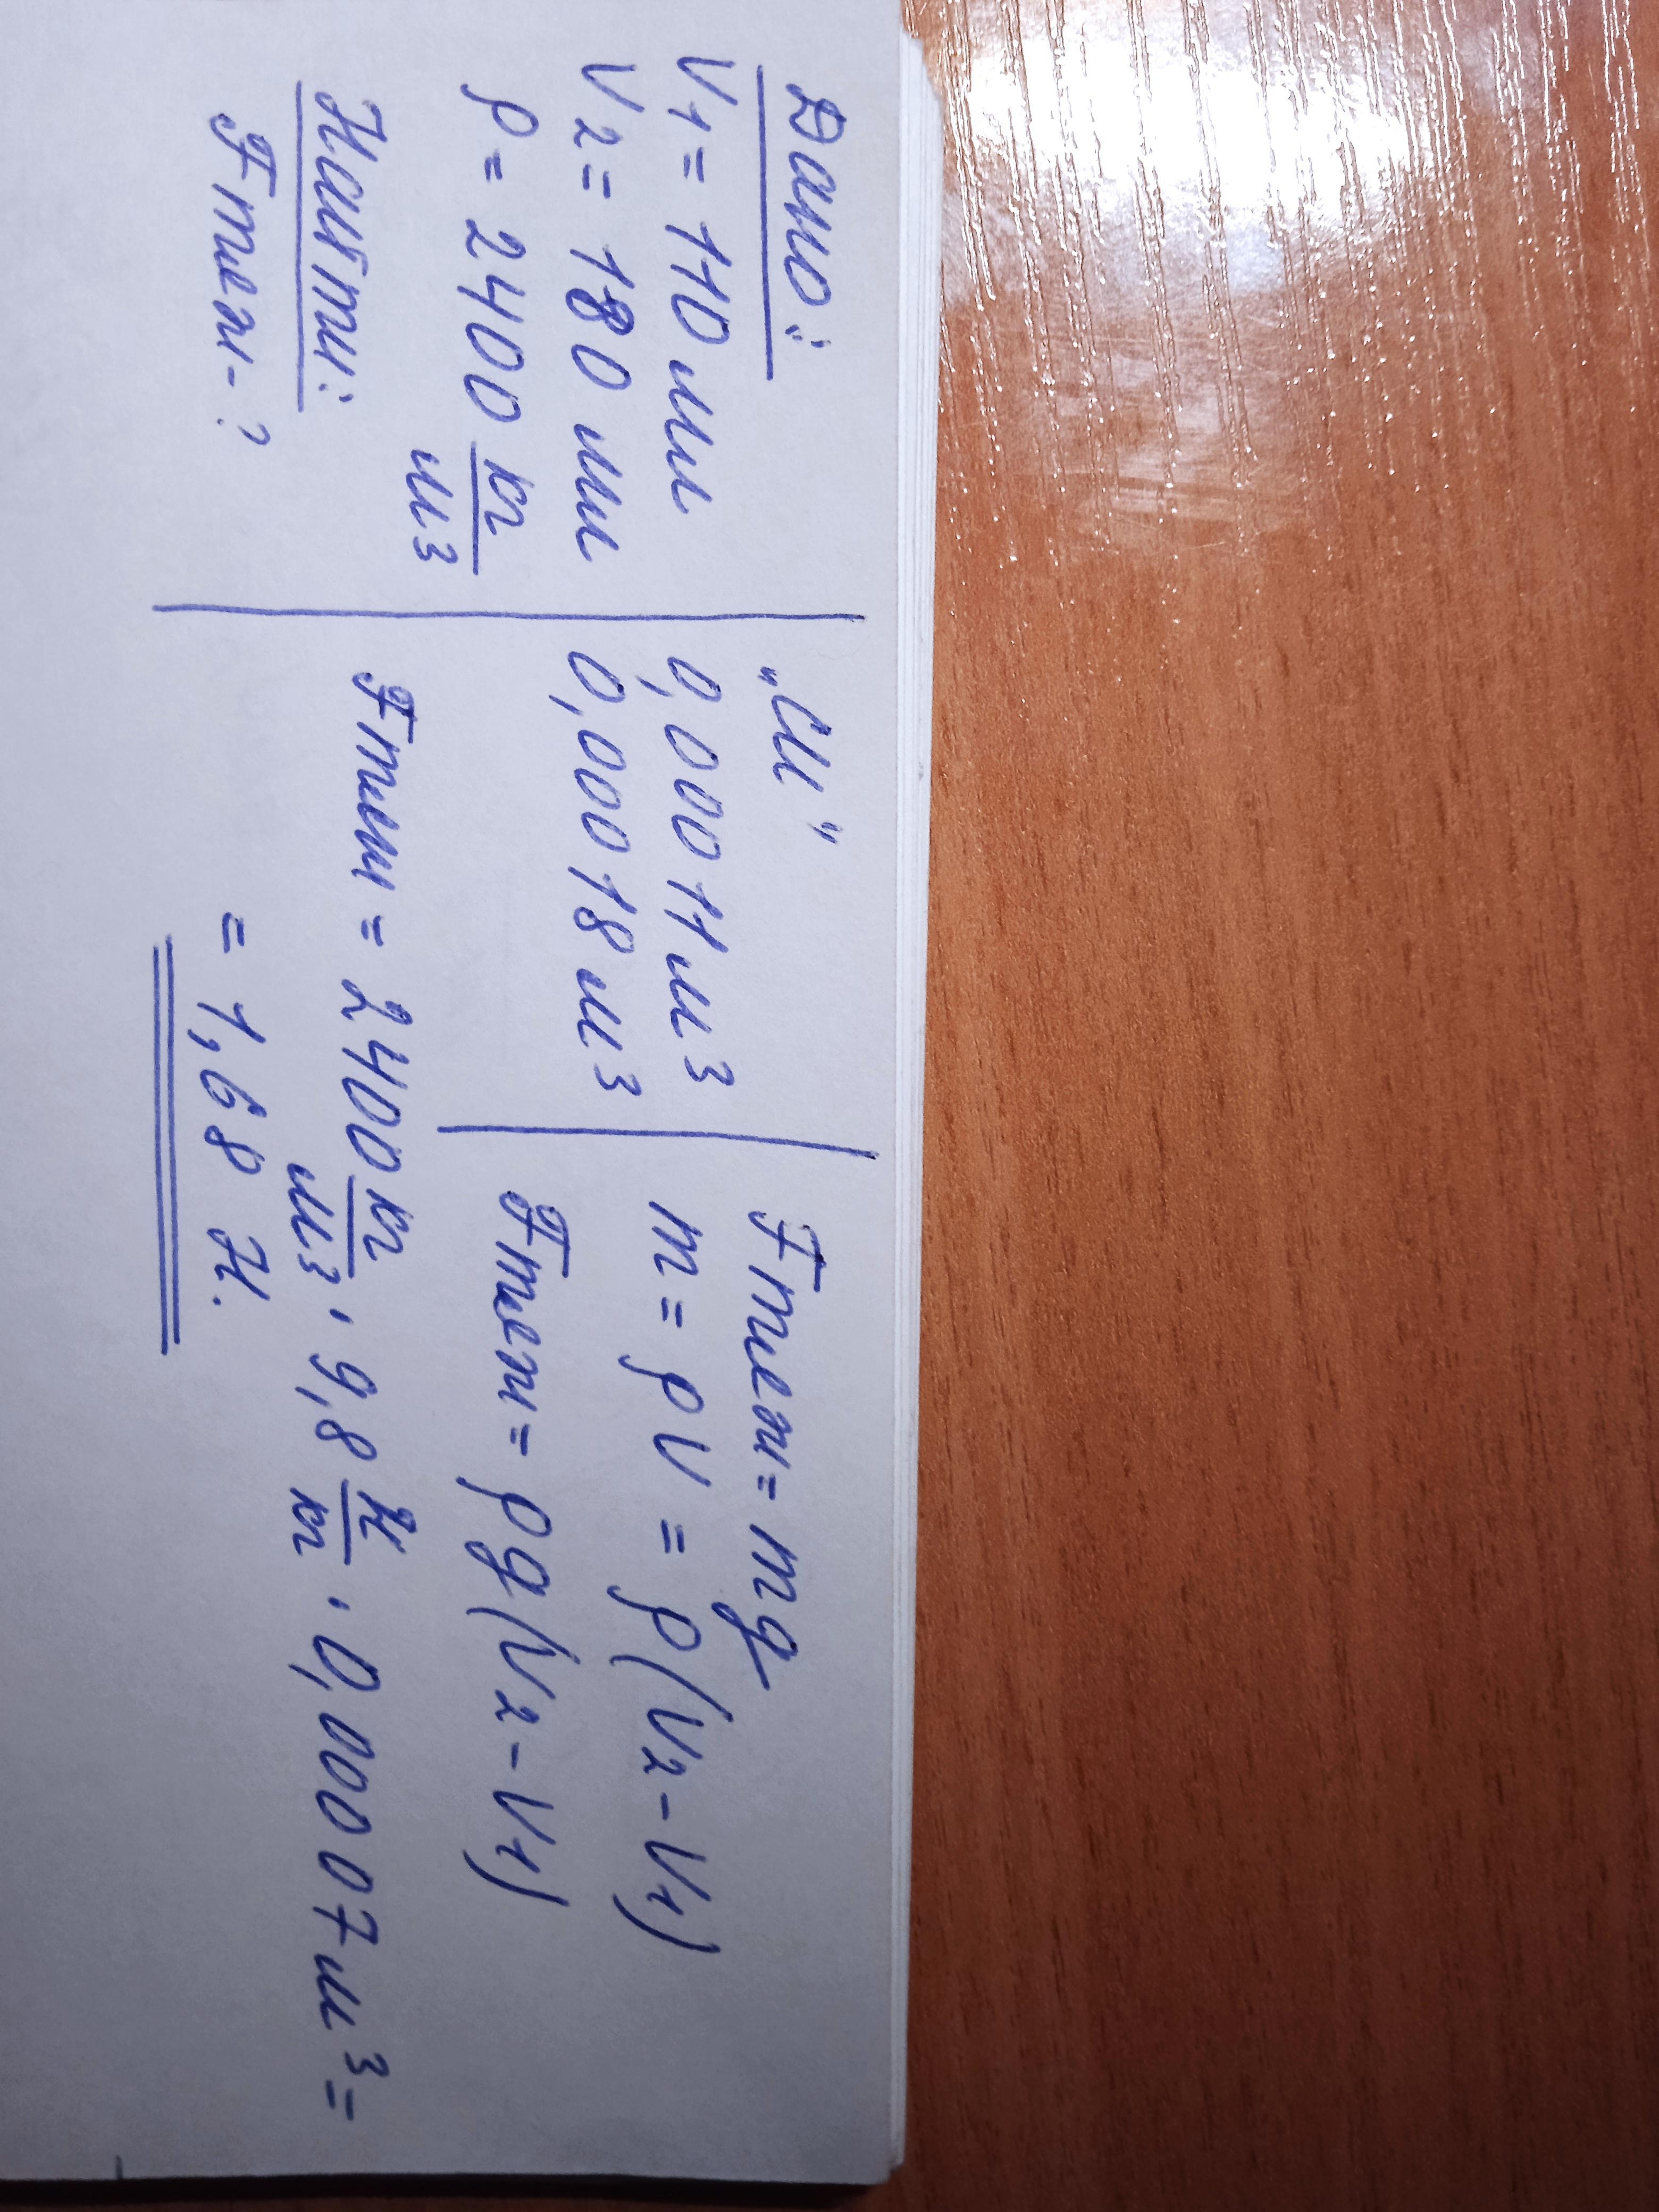 Дано:
V1 = 110 мл
V2 = 180 мл
ρ = 2400 кг/м3
Найти:
Fтяж - ?
"СИ"
0,00011 м³
0,00018 м³
Fтяж = mg
m = ρV = ρ(V2 - V1)
Fтяж = ρg(V2 - V1)
Fтяж = 2400 кг/м3 · 9,8 Н/кг · 0,00007 м³ =
= 1,68 Н.